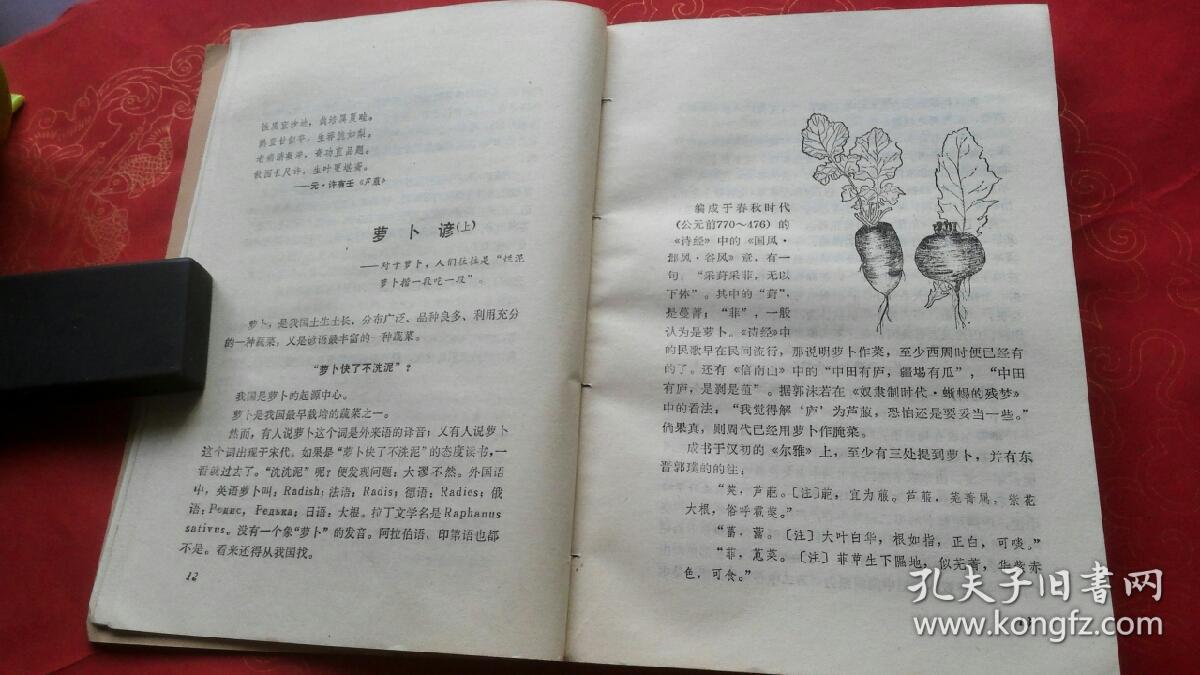 性质宜沙地，栽培属夏畦。
熟登甘似芋，生荐脆如梨。
老病消凝滞，奇功直品题。
故园长尺许，生叶更堪薤。
——元·许有壬《芦菔》
萝卜谚(上)
——对于萝卜，人们往往是“烘泥
萝卜揩一段吃一段”。
萝卜，是我国土生土长，分布广泛、品种良多、利用充分
的一种蔬菜，又是谚语最丰富的一种蔬菜。
“萝卜快了不洗泥”？
我国是萝卜的起源中心。
萝卜是我国最早栽培的蔬菜之一。
然而，有人说萝卜这个词是外来语的译音；又有人说萝卜
这个词出现于宋代。如果是“萝卜快了不洗泥”的态度读书，一
看就过去了。“洗洗泥”呢？便发现问题：大谬不然。外国语
中，英语萝卜叫：Radish；法语：Radis；德语：Radies；俄
语：Редис，Редька；日语：大根。拉丁文学名是Raphanus
sativus。没有一个象“萝卜”的发音。阿拉伯语、印第语也都
不是。看来还得从我国找。
12
编成于春秋时代
(公元前770～476）的
《诗经》中的《国风·
邶风·谷风》章，有一
句，“采葑采菲，无以
下体”。其中的“葑”，
是蔓菁；“菲”，一般
认为是萝卜。《诗经》中
的民歌早在民间流行，那说明萝卜作菜，至少西周时便已经有
的了。还有《信南山》中的“中田有庐，疆場有瓜”，“中田
有庐，是剥是菹”。据郭沫若在《奴隶制时代·蜥蜴的残梦》
中的看法，“我觉得解‘庐’为芦菔，恐怕还是要妥当一些。”
倘果真，则周代已经用萝卜作腌菜。
成书于汉初的《尔雅》上，至少有三处提到萝卜，并有东
晋郭璞的的注：
“葖，芦萉。〔注〕萉，宜为菔。芦菔，芜菁属，紫花
大根，俗呼雹葖。”
“葍，䔰。〔注〕大叶白华，根如指，正白，可啖。”
“菲，蒠菜。〔注〕菲草生下隰地，似芜菁，华紫赤
色，可食。”
孔夫子旧书网
www.kongfz.com